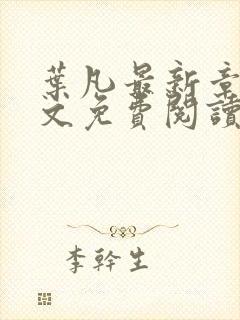 葉凡最新章
文免費閱讀
李幹生